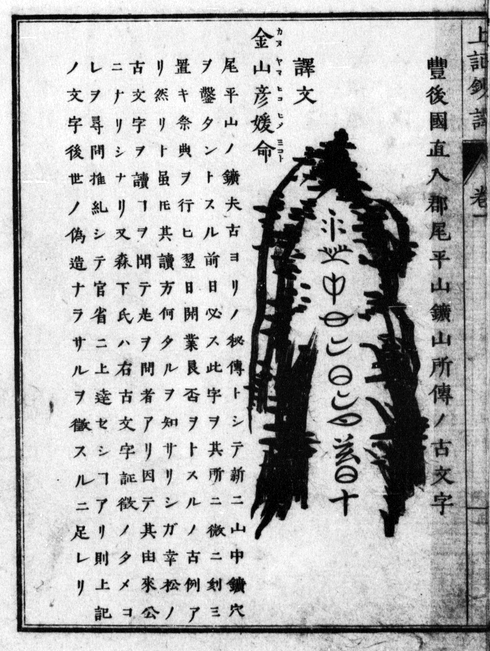 上記鈔譯 卷一
豐後國直入郡尾平山鑛山所傳ノ古文字
譯文
金山彦媛命
カヌ ヤマ ヒコ ヒノ ミコト
尾平山ノ鑛夫古ヨリノ秘傳トシテ新ニ山中鑛穴
ヲ鑿タントスル前日必ス此字ヲ其所ニ微ニ刻ミ
置キ祭典ヲ行ヒ翌日開業良否ヲトスルノ古例ア
リ然リト雖𪜈其讀方何タルヲ知サリシガ幸松ノ
古文字ヲ讀ヿヲ聞テ是ヲ問者アリ因テ其由來公
ニナリシナリ又森下氏ハ右古文字証徴ノタメコ
レヲ尋問推糺シテ官省ニ上達セシヿアリ則上記
ノ文字後世ノ偽造ナラサルヲ徴スルニ足レリ